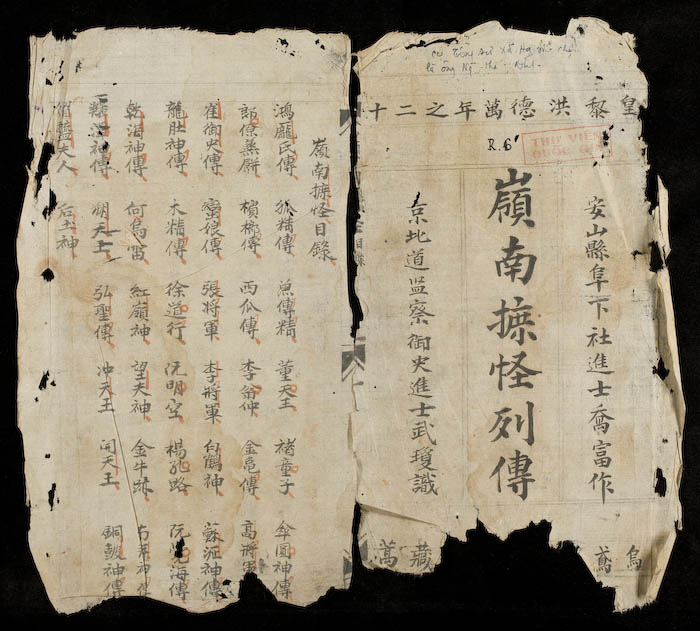 皇黎洪德萬年之二十
R. 6
THƯ VIỆN
安山縣阜下社進士喬富作
嶺南摭怪列傳
京北道监察御史進士武瓊識
烏鳶
藏萬
嶺南摭怪目錄
鴻龐氏傳 狐精傳 魚傳精 董天王 褚童子 傘圓神傳
郎僚蒸餅 檳榔傳 西瓜傳 李翁仲 金亀傳 高將軍
崔御史傳 蠻娘傳 張將軍 李將軍 白鶴神 蘇瀝神傳
龍肚神傳 木精傳 徐道行 阮明空 楊孔路 阮覺海傳
乾海神傳 何烏雷 紅嶺神 望夫神 金牛跡 神傳
神傳 朔天王 弘聖傳 冲天王 開天王 銅鼓神傳
鹽夫人 后土神